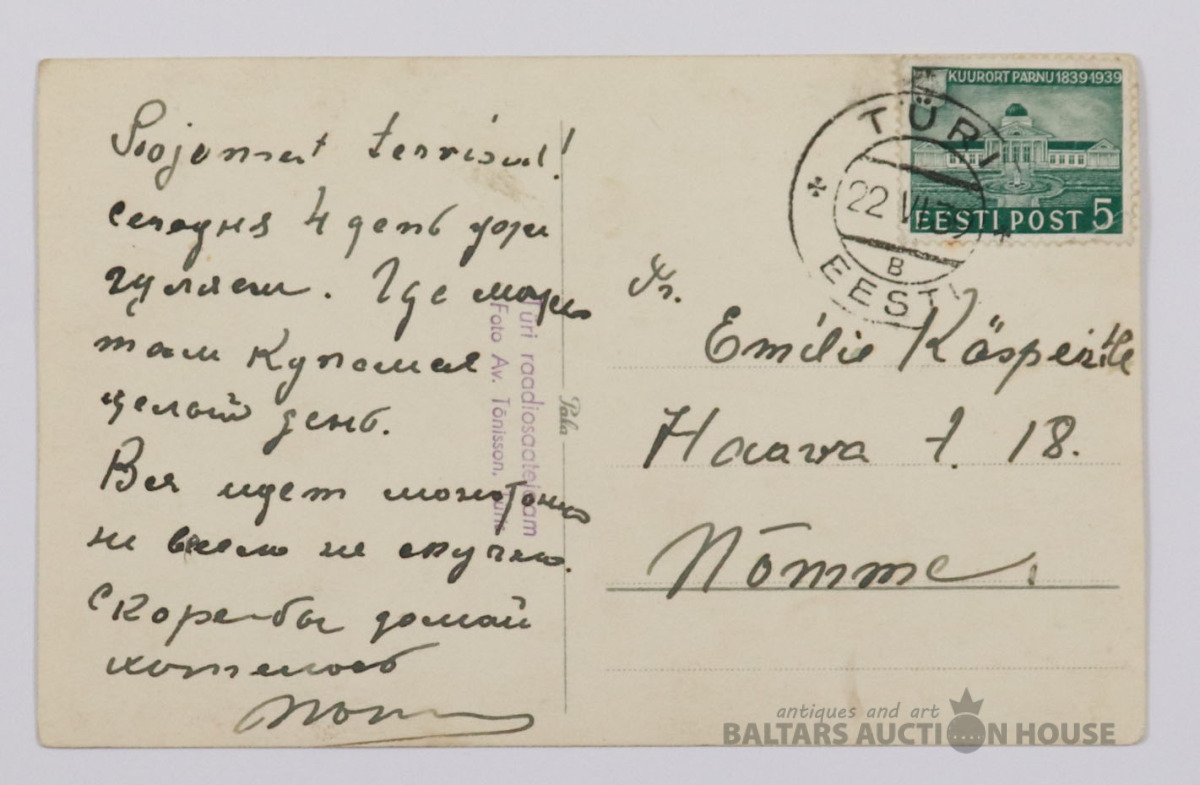 Soojemat tervisid!
сегодня 4 день уже
гуляем. Где
там купаться
целый день.
Все идет монотонно
не весело не скучно.
Скоре-бы домой
хотелось
Türi raadiosaatejaam
Foto Av. Tõnisson, Türi
Paka
KUURORT PÄRNU 1839-1939
EESTI POST 5
TÜRI
22 VII 39
B
EESTI
Pr.
Emilie
Haava t. 18.
Nõmme.
antiques and art
BALTARS AUCTION HOUSE